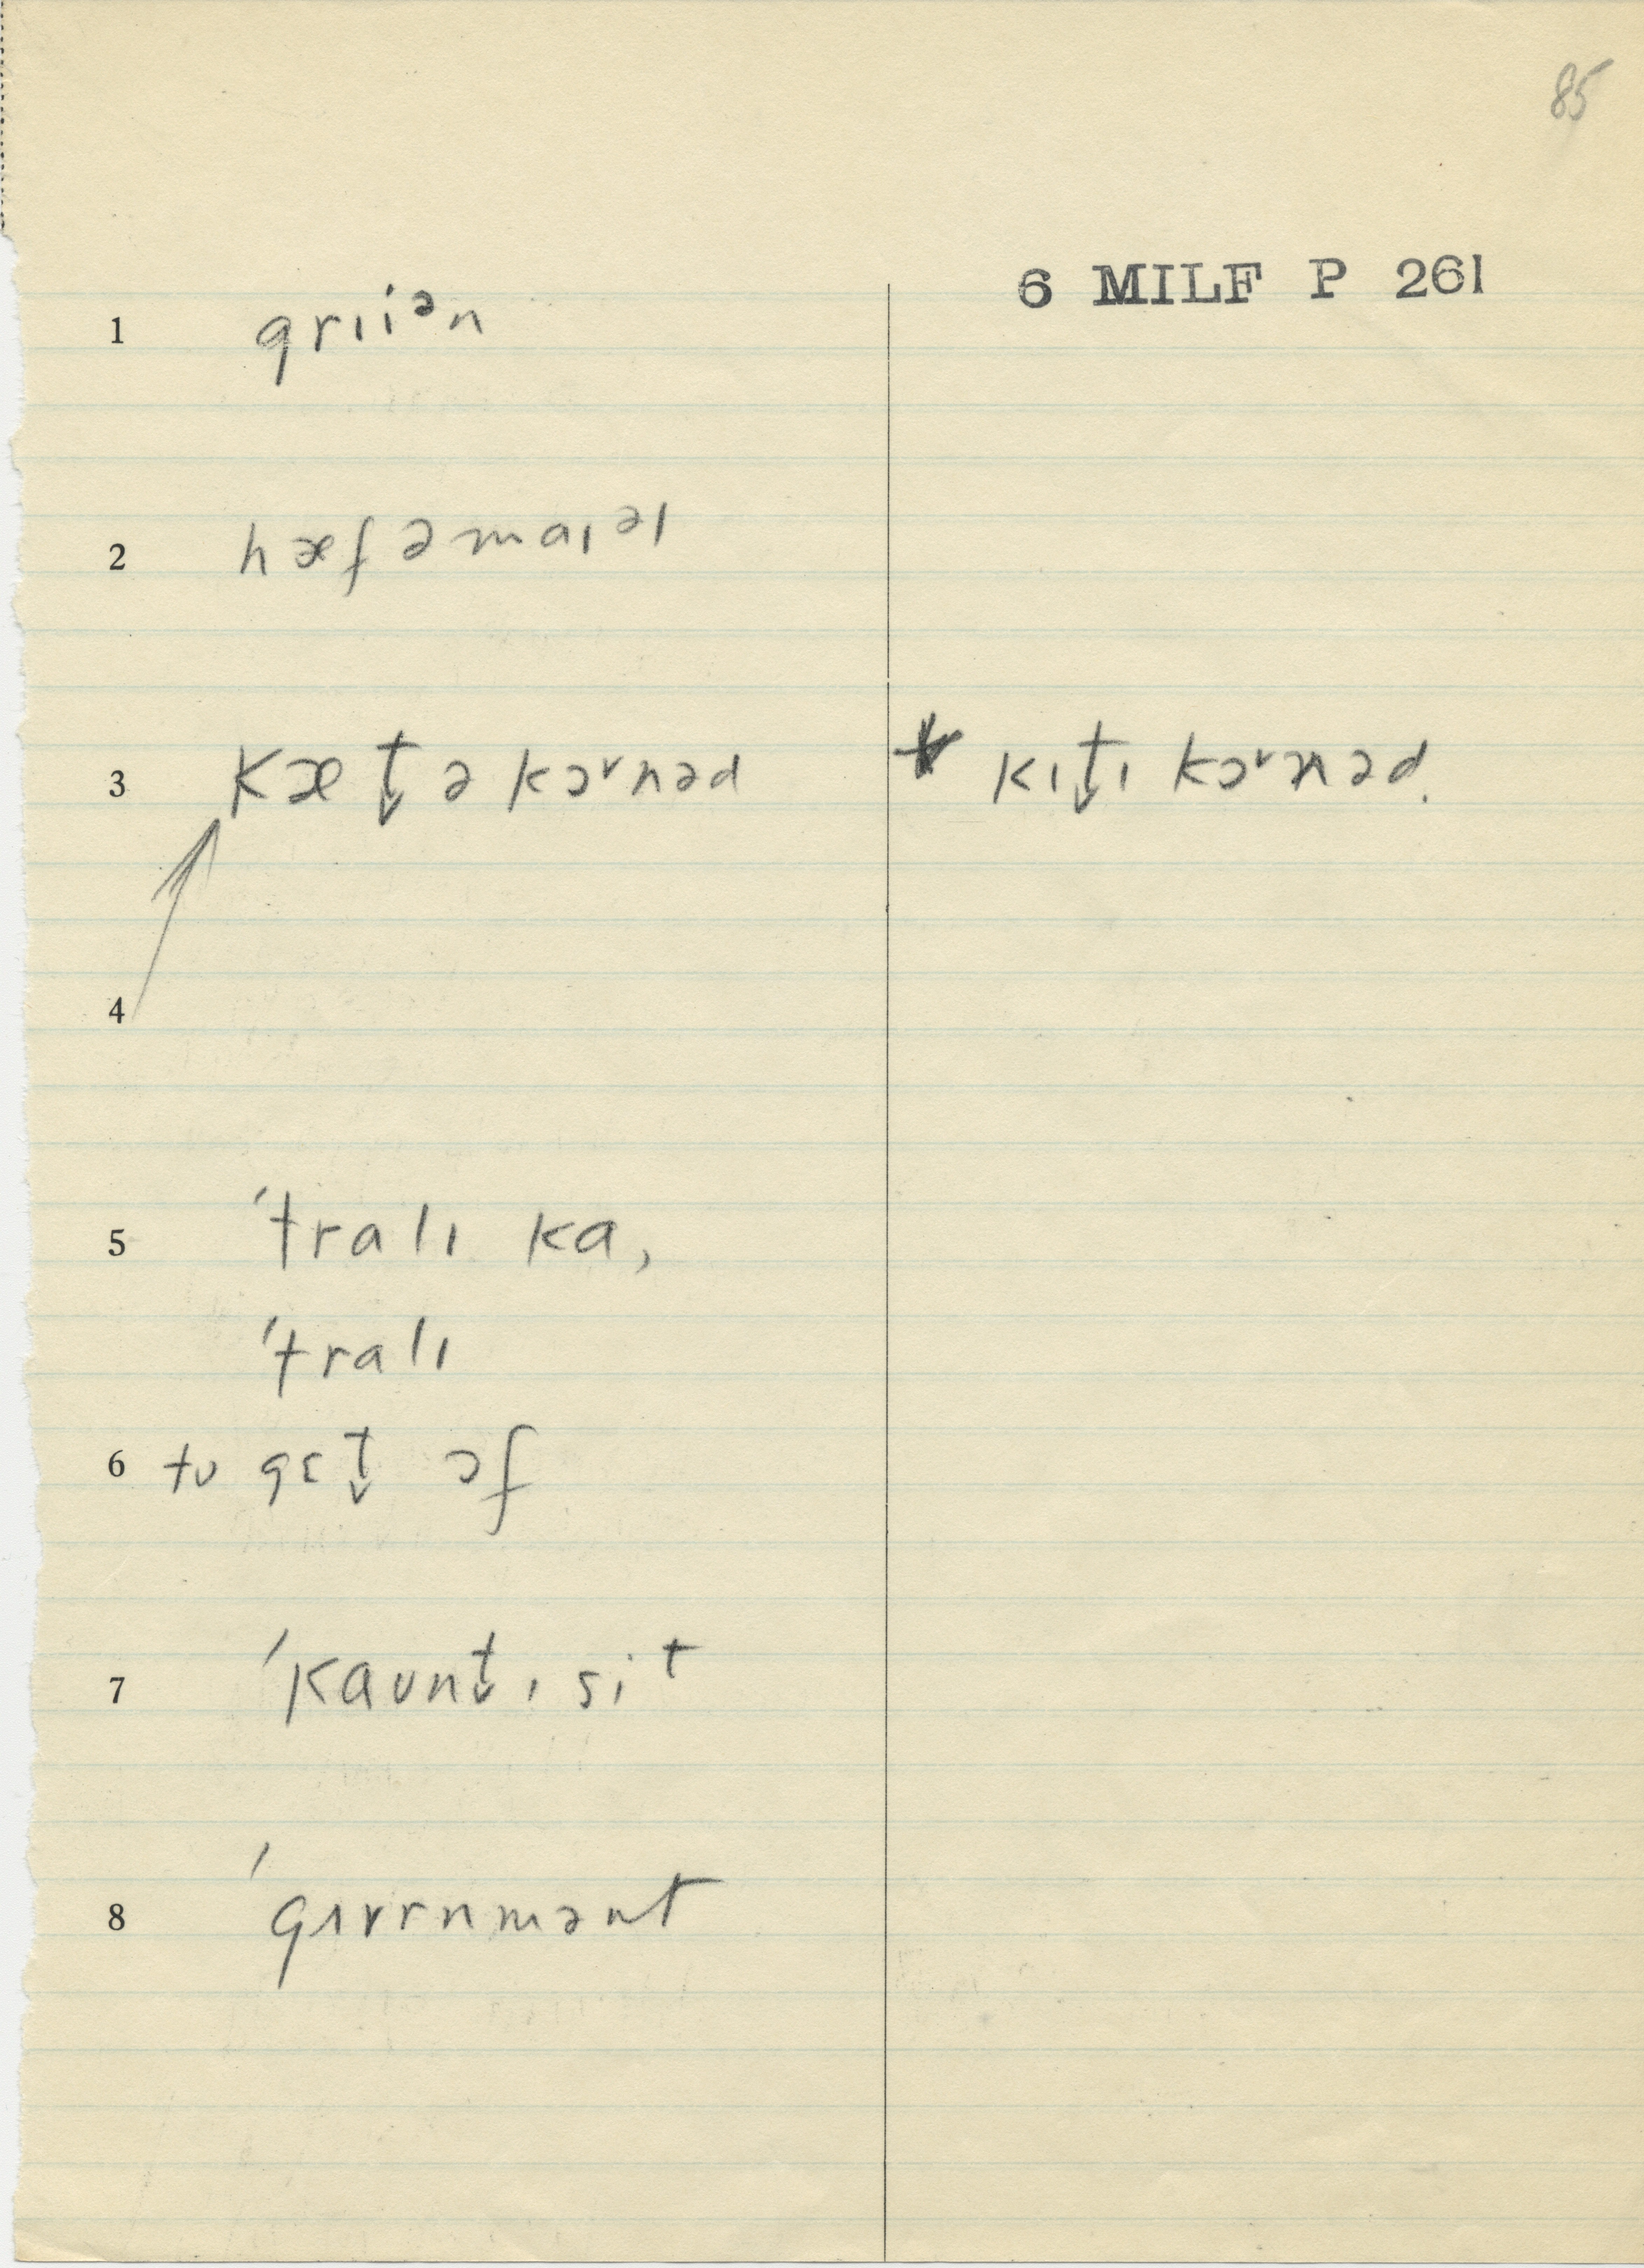 85
6 MILF P 261
1 grɪiᵊn
2 hæf ə maɪᵊl
3 kæt̬ə kɔᵛnəd kɪt̬ɪ kɔᵛnəd.
4
5 ′tralɪ ka,
′tralɪ
6 tʊ gɛt̬ ɔf
7 ′kaʊnt̬ɪ sit
8 ′gʌvrnmənt